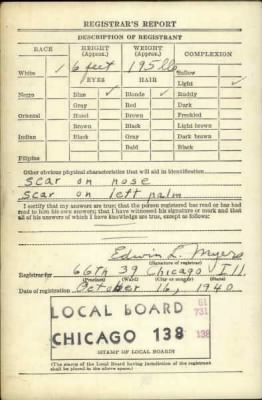 REGISTRAR'S REPORT
DESCRIPTION OF REGISTRANT
RACE HEIGHT (Approx.) WEIGHT (Approx.) COMPLEXION
White ✓ 6 feet 195 lb Sallow
EYES HAIR Light ✓
Negro Blue ✓ Blonde ✓ Ruddy
Gray Red Dark
Oriental Hazel Brown Freckled
Brown Black Light brown
Indian Black Gray Dark brown
Bald Black
Filipino
Other obvious physical characteristics that will aid in identification
Scar on nose
Scar on left palm
I certify that my answers are true; that the person registered has read or has had
read to him his own answers; that I have witnessed his signature or mark and that
all of his answers of which I have knowledge are true, except as follows:
Edwin L. Myers
(Signature of registrar)
Registrar for 66th 39 Chicago Ill.
(Precinct) (Ward) (City or county) (State)
Date of registration October 16, 1940
LOCAL BOARD 51
731
CHICAGO 138 138
(STAMP OF LOCAL BOARD)
(The stamp of the Local Board having jurisdiction of the registrant
shall be placed in the above space.)